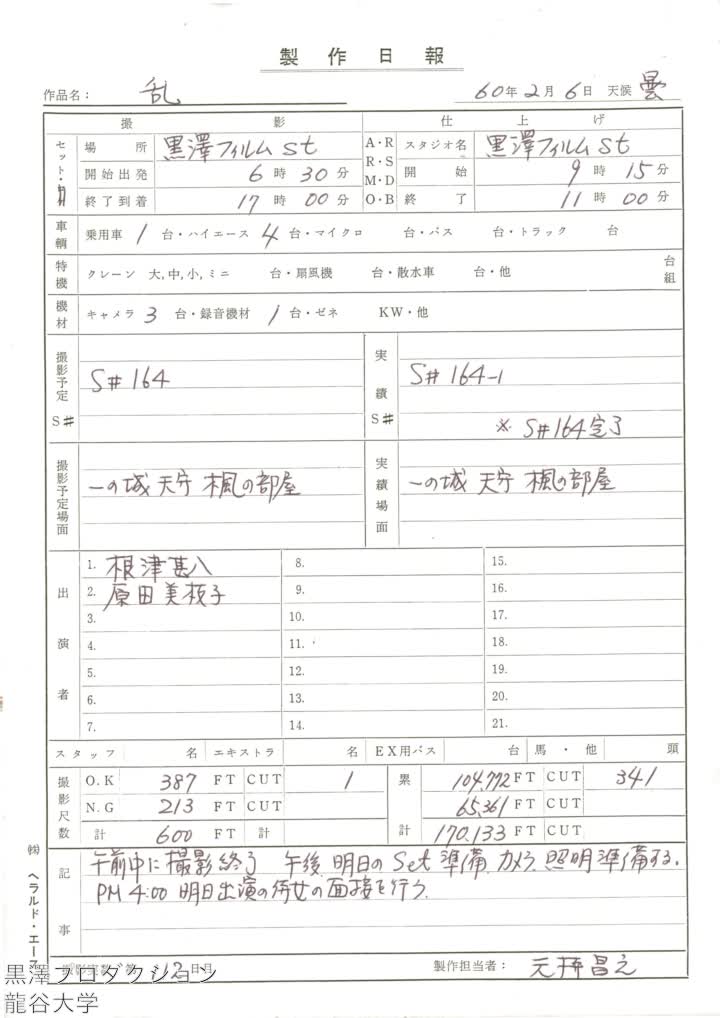 製作日報
作品名： 乱 60年2月6日 天候 曇
撮影 仕上げ
セット・ 場所 黒澤フィルムSt A・R R・S M・D O・B スタジオ名 黒澤フィルムSt
開始出発 6時30分 開始 9時15分
終了到着 17時00分 終了 11時00分
車輌 乗用車 1 台・ハイエース 4 台・マイクロ 台・バス 台・トラック 台
特機 クレーン 大,中,小,ミニ 台・扇風機 台・散水車 台・他 台組
機材 カメラ 3 台・録音機材 1 台・ゼネ KW・他
撮影予定 S# S#164 実績 S# S#164-1
※ S#164完了
撮影予定場面 一の城 天守 楓の部屋 実績場面 一の城 天守 楓の部屋
出演者
1. 根津甚八 8. 15.
2. 原田美枝子 9. 16.
3. 10. 17.
4. 11. 18.
5. 12. 19.
6. 13. 20.
7. 14. 21.
スタッフ 名 エキストラ 名 EX用バス 台 馬・他 頭
撮影尺数 O.K 387 FT CUT 1 累計 104,772 FT CUT 341
N.G 213 FT CUT 65,361 FT CUT
計 600 FT 計 170,133 FT CUT
記事 午前中に撮影終了 午後、明日のSet準備、カメラ、照明準備する。
PM 4:00 明日出演の侍女の面接を行う。
撮影実数 第112日目 製作担当者：
㈱ ヘラルド・エース
黒澤プロダクション
龍谷大学